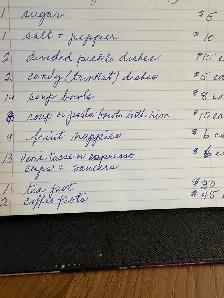 1 sugar $5
1 salt + pepper $10
2 divided pickle dishes $15 e
2 candy (trinket) dishes $5 ea
soup bowls $8
soup or pasta bowls with rim $10 ea
fruit nappies $6 e
13 Demi tasse or espresso $6 ea
cups + saucers
1 tea pot $30
2 coffee pots $45